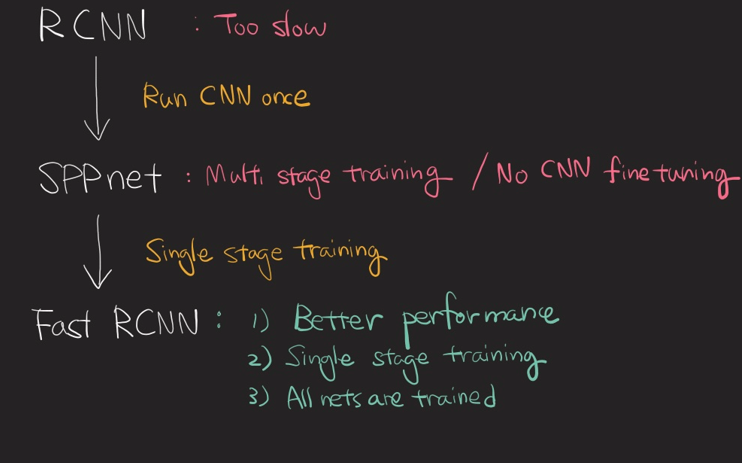 RCNN : Too slow
Run CNN once
SPPnet : Multi stage training / No CNN finetuning
Single stage training
Fast RCNN : 1) Better performance
2) Single stage training
3) All nets are trained